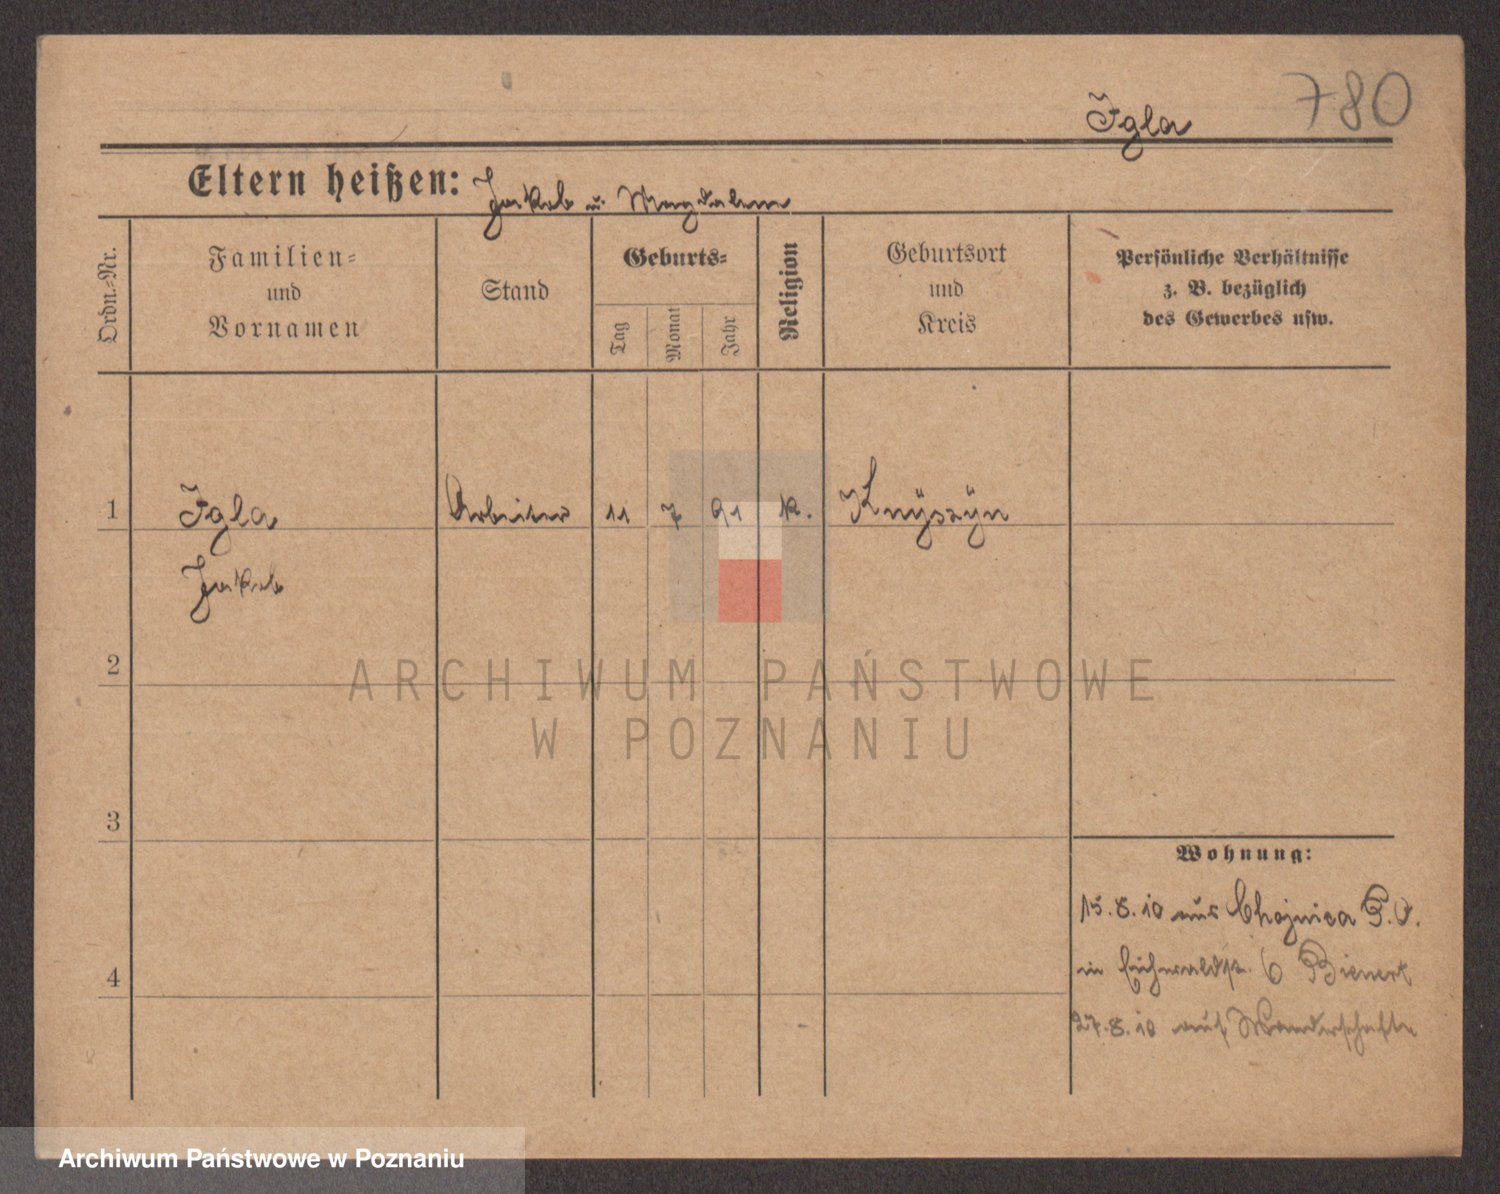 780
Igla
Eltern heißen: Jakob u. Magdalena
Ordn.-Nr.
Familien-
und
Vornamen
Stand
Geburts-
Tag
Monat
Jahr
Religion
Geburtsort
und
Kreis
Persönliche Verhältnisse
z. B. bezüglich
des Gewerbes usw.
1 Igla Arbeiter 11 7 91 k. Knÿszÿn
Jakob
2
ARCHIWUM PAŃSTWOWE
W POZNANIU
3
Wohnung:
15.8.10 aus Chojnica P.O.
in Eichwaldstr. 6 Bienert
4
27.8.10 auf Wanderschaft
Archiwum Państwowe w Poznaniu